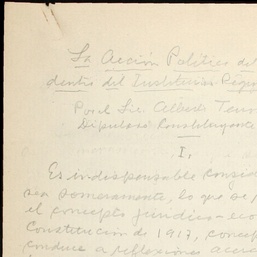 La Acción Política del
dentro del Instituto
Por el Lic. Alberto
Diputado Constituyente
I.
Es indispensable
someramente, lo que se
el concepto jurídico-eco
Constitución de 1917, concep
conduce a reflexiones acerc